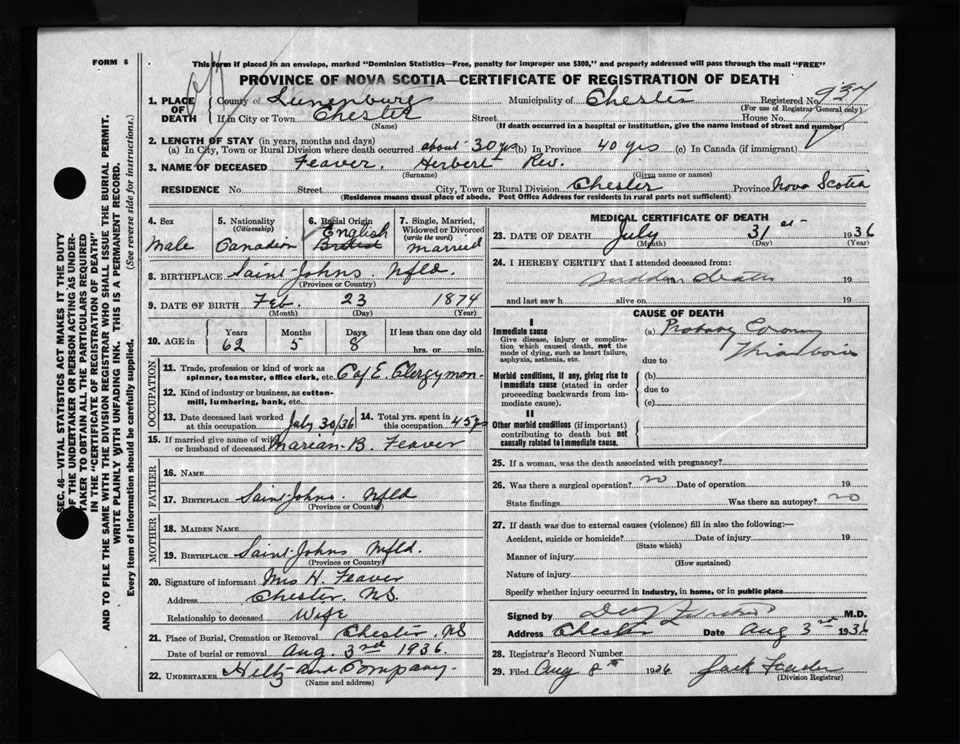 FORM 6
This form if placed in an envelope, marked "Dominion Statistics—Free, penalty for improper use $300," and properly addressed will pass through the mail "FREE"
PROVINCE OF NOVA SCOTIA—CERTIFICATE OF REGISTRATION OF DEATH
1. PLACE OF DEATH County of Lunenburg Municipality of Chester Registered No. 937
(For use of Registrar General only)
If in City or Town Chester Street House No.
(Name) (If death occurred in a hospital or institution, give the name instead of street and number)
2. LENGTH OF STAY (in years, months and days)
(a) In City, Town or Rural Division where death occurred about 30 yrs (b) In Province 40 yrs (c) In Canada (if immigrant)
3. NAME OF DECEASED Feaver, Herbert Rev.
(Surname) (Given name or names)
RESIDENCE No. Street City, Town or Rural Division Chester Province Nova Scotia
(Residence means usual place of abode. Post Office Address for residents in rural parts not sufficient)
4. Sex
Male
5. Nationality
(Citizenship)
Canadian
6. Racial Origin
English
7. Single, Married, Widowed or Divorced
(write the word)
Married
8. BIRTHPLACE Saint Johns. Nfld.
(Province or Country)
9. DATE OF BIRTH Feb. 23 1874
(Month) (Day) (Year)
10. AGE in Years 62 Months 5 Days 8 If less than one day old hrs. or min.
OCCUPATION
11. Trade, profession or kind of work as spinner, teamster, office clerk, etc. C of E. Clergyman.
12. Kind of industry or business, as cotton-mill, lumbering, bank, etc.
13. Date deceased last worked at this occupation July 30/36
14. Total yrs. spent in this occupation 45 yrs
15. If married give name of wife or husband of deceased Marian B. Feaver
FATHER
16. NAME
17. BIRTHPLACE Saint Johns. Nfld
(Province or Country)
MOTHER
18. MAIDEN NAME
19. BIRTHPLACE Saint Johns Nfld.
(Province or Country)
20. Signature of informant Mrs H. Feaver
Address Chester. NS
Relationship to deceased Wife
21. Place of Burial, Cremation or Removal Chester, NS
Date of burial or removal Aug. 3rd 1936.
22. UNDERTAKER Hiltz and Company.
(Name and address)
MEDICAL CERTIFICATE OF DEATH
23. DATE OF DEATH July 31st 1936
(Month) (Day) (Year)
24. I HEREBY CERTIFY that I attended deceased from:
sudden death 19
and last saw h alive on 19
CAUSE OF DEATH
I
Immediate cause
Give disease, injury or complication which caused death, not the mode of dying, such as heart failure, asphyxia, asthenia, etc.
(a) Probably Coronary
due to Thrombosis
Morbid conditions, if any, giving rise to immediate cause (stated in order proceeding backwards from immediate cause).
(b)
due to
(c)
II
Other morbid conditions (if important) contributing to death but not causally related to immediate cause.
25. If a woman, was the death associated with pregnancy?
26. Was there a surgical operation? no Date of operation 19
State findings Was there an autopsy? no
27. If death was due to external causes (violence) fill in also the following:—
Accident, suicide or homicide? Date of injury 19
(State which)
Manner of injury
(How sustained)
Nature of injury
Specify whether injury occurred in industry, in home, or in public place
Signed by M.D.
Address Chester Date Aug 3rd 1936
28. Registrar's Record Number
29. Filed Aug 8th 1936
(Division Registrar)
SEC. 46—VITAL STATISTICS ACT MAKES IT THE DUTY
OF THE UNDERTAKER OR PERSON ACTING AS UNDER-
TAKER TO OBTAIN ALL THE PARTICULARS REQUIRED
IN THE "CERTIFICATE OF REGISTRATION OF DEATH"
AND TO FILE THE SAME WITH THE DIVISION REGISTRAR WHO SHALL ISSUE THE BURIAL PERMIT.
WRITE PLAINLY WITH UNFADING INK. THIS IS A PERMANENT RECORD.
Every item of information should be carefully supplied. (See reverse side for instructions.)